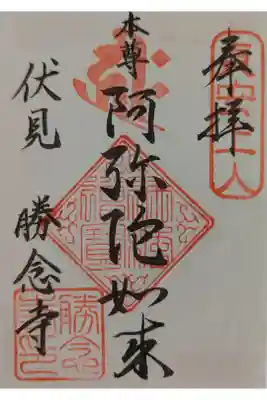 奉拝
本尊 阿弥陀如来
伏見 勝念寺